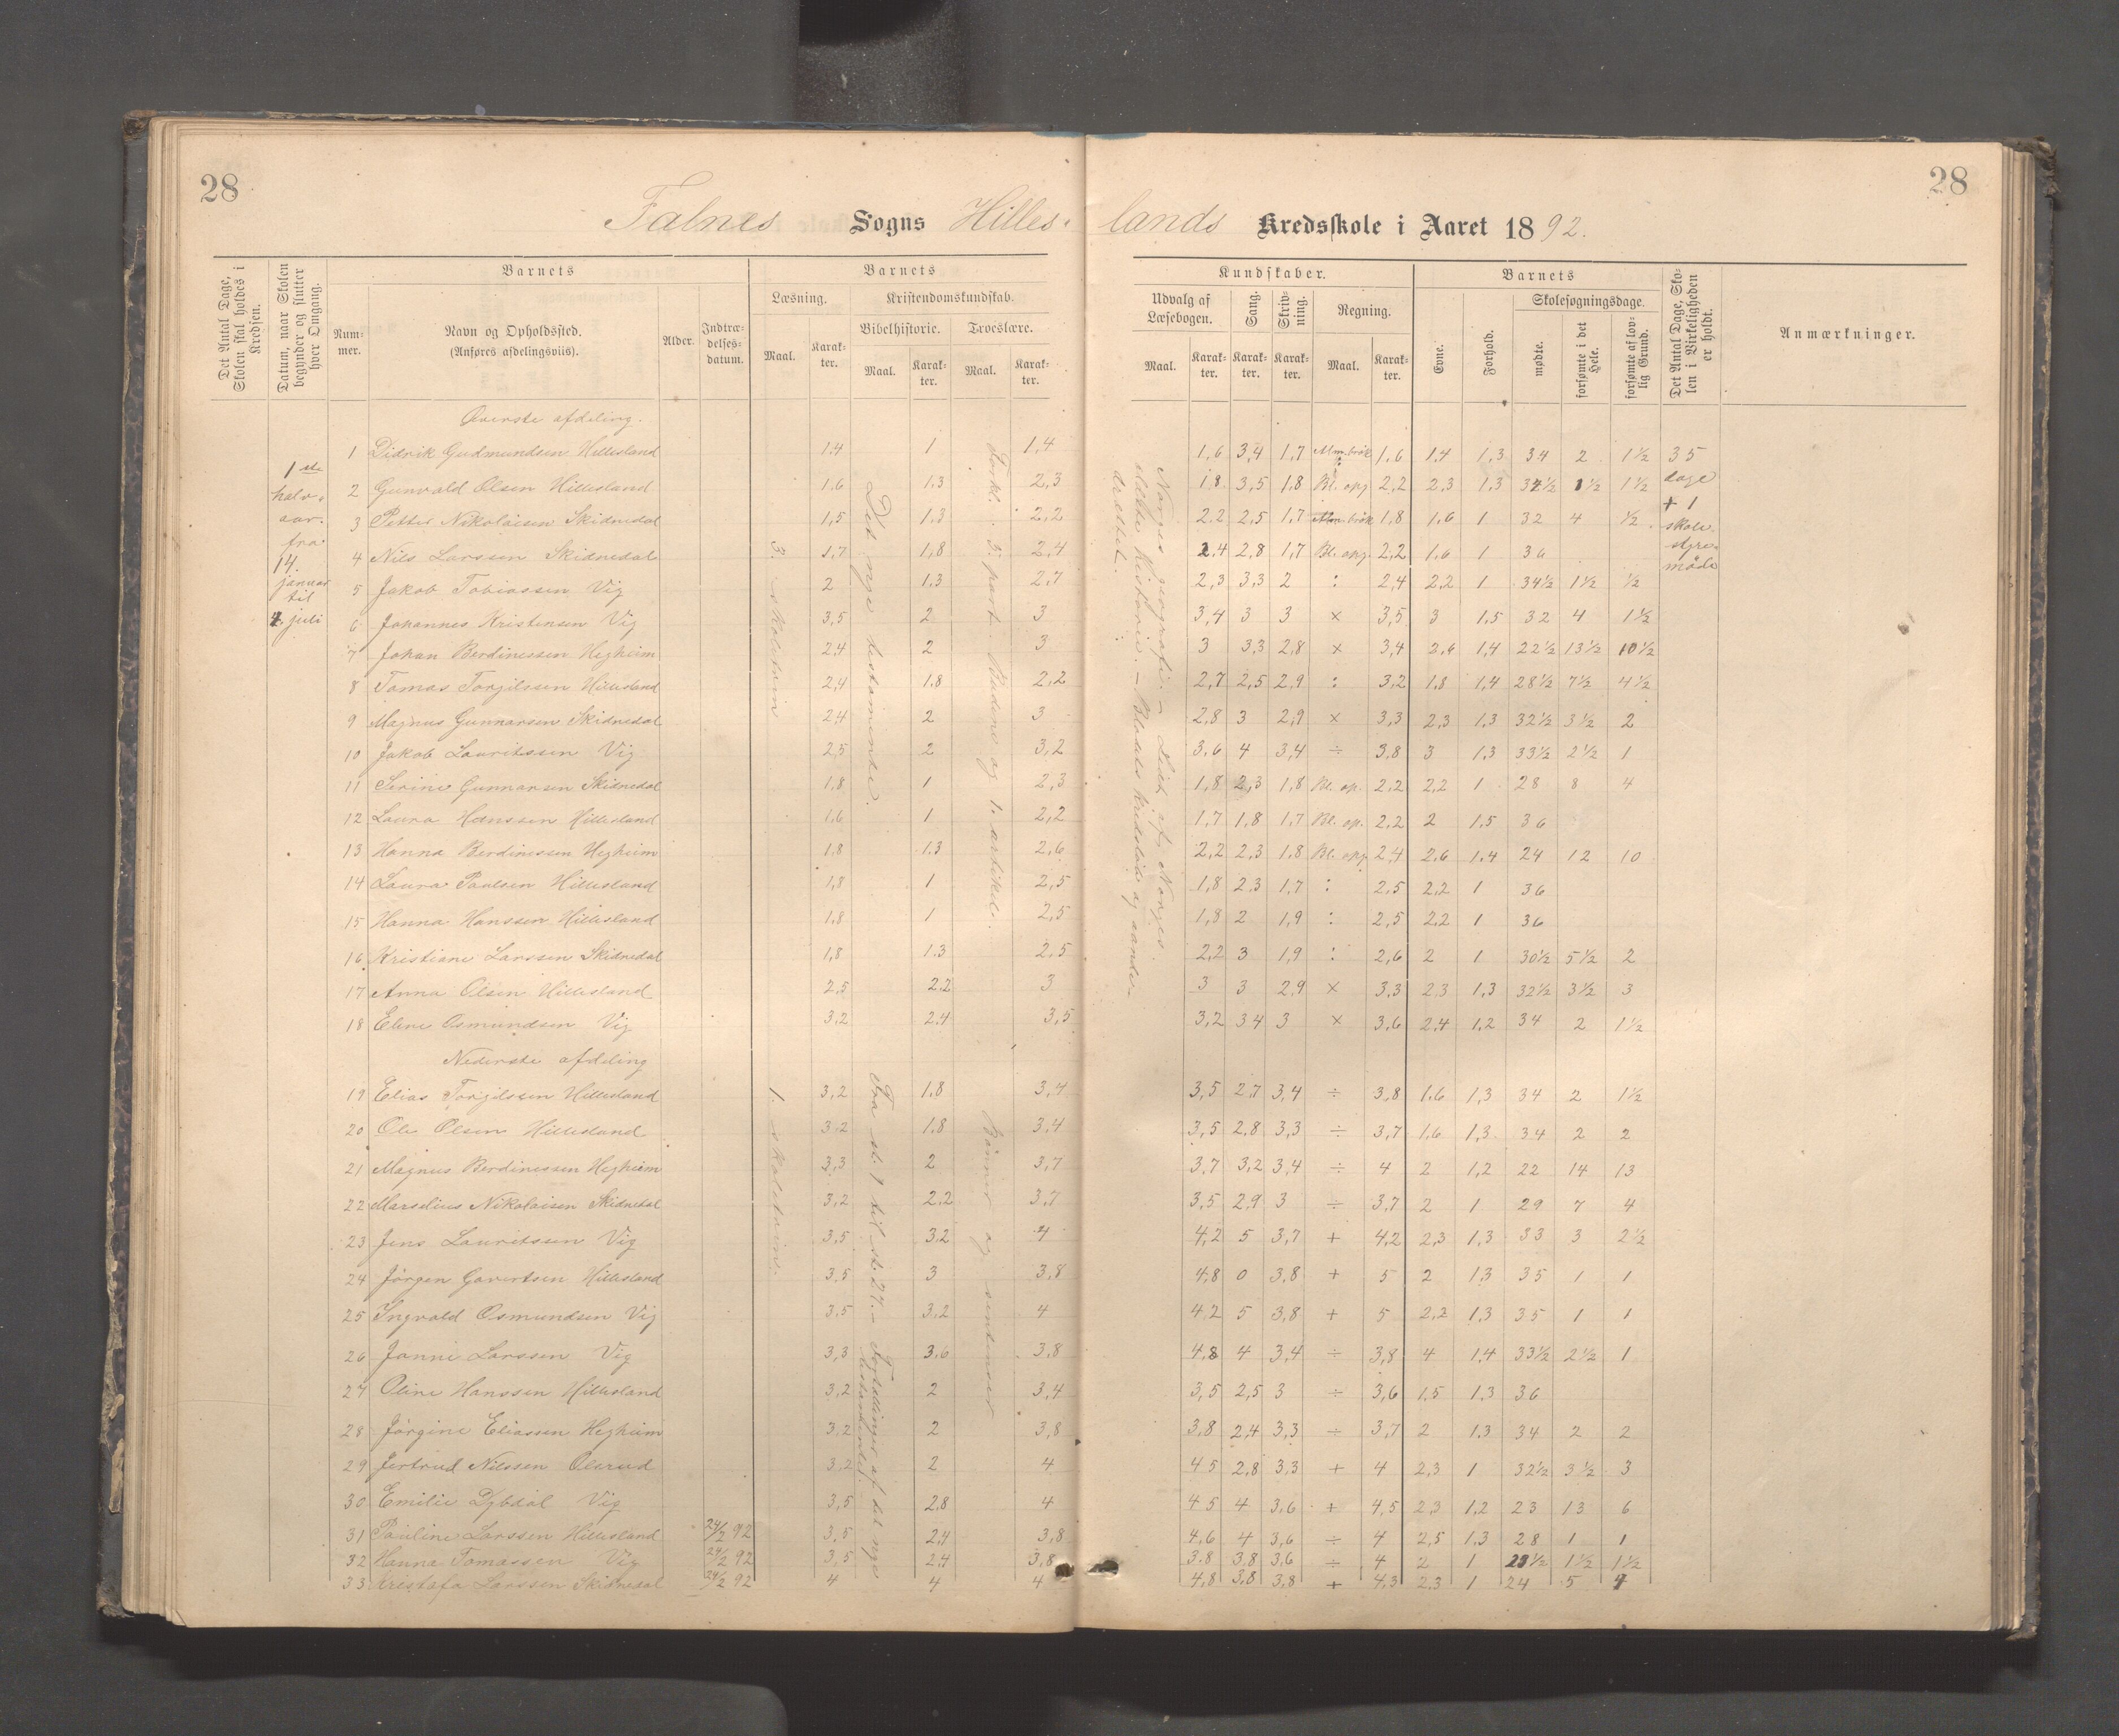 28
28
Falnes Sogns Hilles- lands Kredsskole i Aaret 1892.
Det Antal Dage, Skolen skal holdes i Kredsen.
Datum, naar Skolen begynder og slutter hver Omgang.
Barnets
Nummer.
Navn og Opholdssted.
(Anføres afdelingsviis).
Alder.
Indtrædelsesdatum.
Barnets
Læsning.
Maal.
Karakter.
Kristendomskundskab.
Bibelhistorie.
Maal.
Karakter.
Troeslære.
Maal.
Karakter.
Kundskaber.
Udvalg af Læsebogen.
Maal.
Karakter.
Sang.
Karakter.
Skrivning.
Karakter.
Regning.
Maal.
Karakter.
Barnets
Evne.
Forhold.
Skolesøgningsdage.
mødte.
forsømte i det Hele.
forsømte af lovlig Grund.
Det Antal Dage, Skolen i Virkeligheden er holdt.
Anmærkninger.
1ste halvaar. fra 14. januar til 4. juli
3. skoletrin
Det nye testamente.
Forkl. 5. part Budene og 1. artikel.
Norges geografi. – Lidt af Norges
ældre historie. – Blodets kredsløb og aandedrættet.
35 dage + 1 skolestyremøde
Øverste afdeling.
1 Didrik Gudmundsen Hillesland 1,4 1 1,4 1,6 3,4 1,7 Alm. brøk 1,6 1,4 1,3 34 2 1½
2 Gunvald Olsen Hillesland 1,6 1,3 2,3 1,8 3,5 1,8 Bl. opg 2,2 2,3 1,3 34½ 1½ 1½
3 Petter Nikolaisen Skidnedal 1,5 1,3 2,2 2,2 2,5 1,7 Alm. brøk 1,8 1,6 1 32 4 ½
4 Nils Larssen Skidnedal 1,7 1,8 2,4 2,4 2,8 1,7 Bl. opg. 2,2 1,6 1 36
5 Jakob Tobiassen Vig 2 1,3 2,7 2,3 3,3 2 : 2,4 2,2 1 34½ 1½ ½
6 Johannes Kristensen Vig 3,5 2 3 3,4 3 3 × 3,5 3 1,5 32 4 1½
7 Johan Berdinessen Hegheim 2,4 2 3 3 3,3 2,8 × 3,4 2,6 1,4 22½ 13½ 10½
8 Tomas Torjilssen Hillesland 2,4 1,8 2,2 2,7 2,5 2,9 : 3,2 1,8 1,4 28½ 7½ 4½
9 Magnus Gunnarsen Skidnedal 2,4 2 3 2,8 3 2,9 × 3,3 2,3 1,3 32½ 3½ 2
10 Jakob Lauritssen Vig 2,5 2 3,2 3,6 4 3,4 ÷ 3,8 3 1,3 33½ 2½ 1
11 Serine Gunnarsen Skidnedal 1,8 1 2,3 1,8 2,3 1,8 Bl. op. 2,2 2,2 1 28 8 4
12 Laura Hanssen Hillesland 1,6 1 2,2 1,7 1,8 1,7 Bl. op. 2,2 2 1,5 36
13 Hanna Berdinessen Hegheim 1,8 1,3 2,6 2,2 2,3 1,8 Bl. opg 2,4 2,6 1,4 24 12 10
14 Laura Paulsen Hillesland 1,8 1 2,5 1,8 2,3 1,7 : 2,5 2,2 1 36
15 Hanna Hanssen Hillesland 1,8 1 2,5 1,8 2 1,9 : 2,5 2,2 1 36
16 Kristiane Larssen Skidnedal 1,8 1,3 2,5 2,2 3 1,9 : 2,6 2 1 30½ 5½ 2
17 Anna Olsen Hillesland 2,5 2,2 3 3 3 2,9 × 3,3 2,3 1,3 32½ 3½ 3
18 Eline Osmundsen Vig 3,2 2,4 3,5 3,2 3,4 3 × 3,6 2,4 1,2 34 2 1½
Nederste afdeling
1. skoletrin.
Fra st. 1 til st. 27. – Fortællinger af det nye testamente.
Bønner og sentenser
19 Elias Torjilssen Hillesland 3,2 1,8 3,4 3,5 2,7 3,4 ÷ 3,8 1,6 1,3 34 2 1½
20 Ole Olsen Hillesland 3,2 1,8 3,4 3,5 2,8 3,3 ÷ 3,7 1,6 1,3 34 2 2
21 Magnus Berdinessen Hegheim 3,3 2 3,7 3,7 3,2 3,4 ÷ 4 2 1,2 22 14 13
22 Marselius Nikolaisen Skidnedal 3,2 2,2 3,7 3,5 2,9 3 ÷ 3,7 2 1 29 7 4
23 Jens Lauritssen Vig 3,5 3,2 4 4,2 5 3,7 + 4,2 2,3 1,3 33 3 2½
24 Jørgen Govertsen Hillesland 3,5 3 3,8 4,8 0 3,8 + 5 2 1,3 35 1 1
25 Ingvald Osmundsen Vig 3,5 3,2 4 4,2 5 3,8 + 5 2,2 1,3 35 1 1
26 Janne Larssen Vig 3,3 3,6 3,8 4,8 4 3,4 ÷ 3,8 4 1,4 33½ 2½ 1
27 Oline Hanssen Hillesland 3,2 2 3,4 3,5 2,5 3 ÷ 3,6 1,5 1,3 36
28 Jørgine Eliassen Hegheim 3,2 2 3,8 3,8 2,4 3,3 ÷ 3,7 2 1,3 34 2 2
29 Jertrud Nilssen Olsrud 3,2 2 4 4,5 2,8 3,3 + 4 2,3 1 32½ 3½ 3
30 Emilie Dybdal Vig 3,5 2,8 4 4,5 4 3,6 + 4,5 2,3 1,2 23 13 6
31 Pauline Larssen Hillesland 24/2 92 3,5 2,4 3,8 4,6 4 3,6 ÷ 4 2,5 1,3 28 1 1
32 Hanna Tomassen Vig 24/2 92 3,5 2,4 3,8 3,8 3,8 3,6 ÷ 4 2 1 1½ 1½
33 Kristofa Larssen Skidnedal 24/2 92 4 4 4 4,8 3,8 3,8 + 4,3 2,3 1 24 5 4